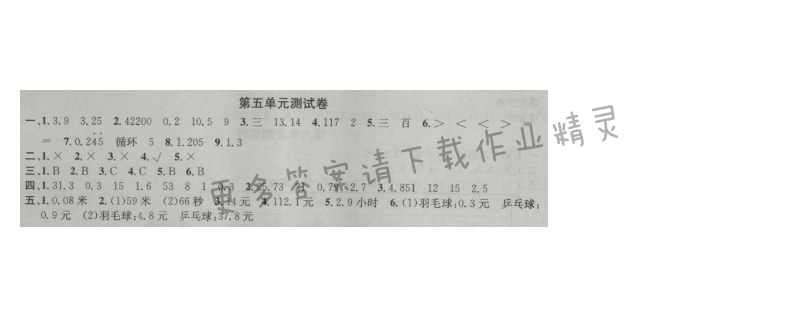 第五单元测试卷
一、1.3.9 3.25 2.42200 0.2 10.5 9 3.三 13.14 4.117 2 5.三 百 6.> < < >
= 7.0.2̇45̇ 循环 5 8.1.205 9.1.3
二、1.× 2.× 3.× 4.√ 5.×
三、1.B 2.B 3.C 4.C 5.B 6.B
四、1.31.3 0.3 15 1.6 53 8 1 0.3 2.25.73 21 0.79 2.7 3.4.851 12 15 2.5
五、1.0.08米 2.(1)59米 (2)66秒 3.14元 4.112.1元 5.2.9小时 6.(1)羽毛球:0.3元 乒乓球:
0.9元 (2)羽毛球:4.8元 乒乓球:37.8元
更多答案请下载作业精灵